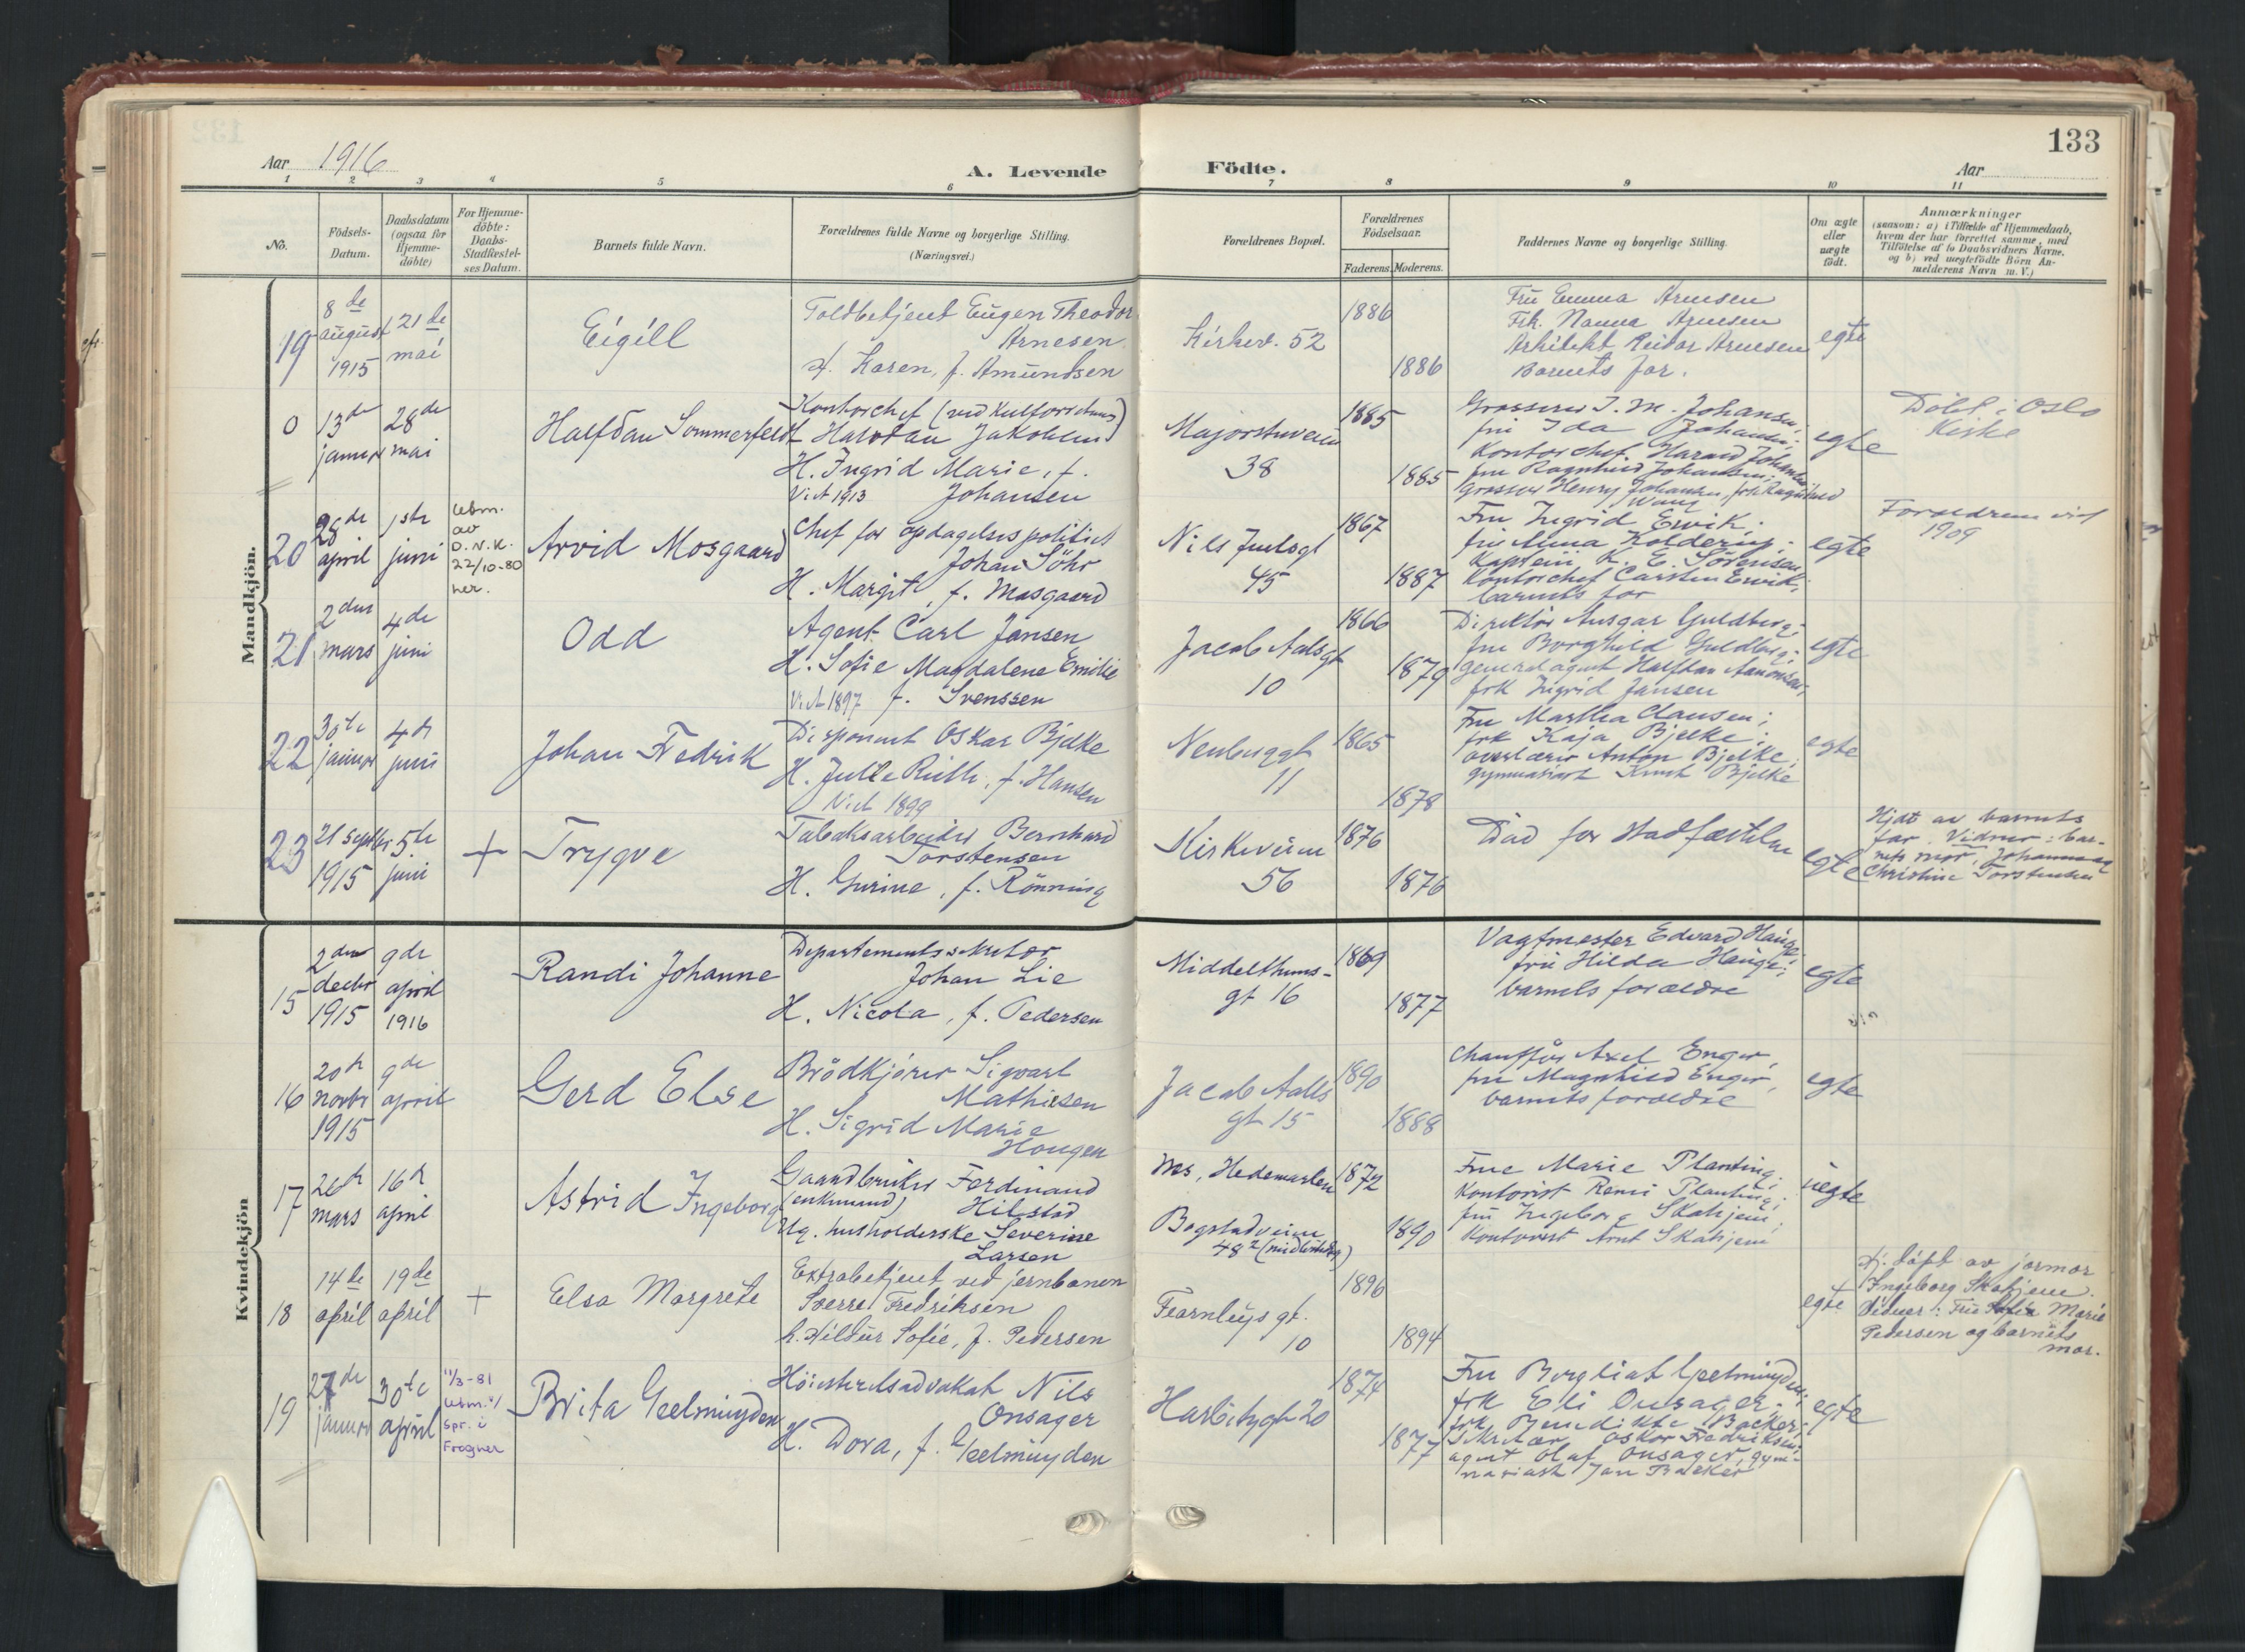 133
Aar 1916
A. Levende Födte.
Aar
1 2 3 4 5 6 7 8 9 10 11
No.
Födsels-
Datum.
Daabsdatum
(ogsaa for
Hjemme-
döbte)
For Hjemme-
döbte:
Daabs-
Stadfæstel-
ses Datum.
Barnets fulde Navn.
Forældrenes fulde Navne og borgerlige Stilling.
(Næringsvei.)
Forældrenes Bopæl.
Forældrenes
Födselsaar.
Faderens. Moderens.
Faddernes Navne og borgerlige Stilling.
Om ægte
eller
uægte
födt.
Anmærkninger
(saasom: a) i Tilfælde af Hjemmedaab,
hvem der har forrettet samme, med
Tilföielse af to Daabsvidners Navne,
og b) ved uægtefödte Börn An-
melderens Navn m. V.)
Mandkjön.
19
8de
august
1915
21de
mai
Eigill
Toldbetjent Eugen Theodor
Arnesen
H. Karen, f. Amundsen
Kirkev. 52
1886
1886
Fru Emma Arnesen
Frk. Nanna Arnesen
Arkitekt Reidar Arnesen
Barnets far.
egte
0
13de
januar
28de
mai
Halfdan Sommerfeldt
Kontorchef
Jakobsen
H. Ingrid Marie, f.
Viet 1913 Johansen
Majorstuveien
38
1885
1885
Grosserer J. M. Johansen;
fru Ida Johansen;
Kontorchef Harald Johansen
fru Ragnhild Johansen,
Grosserer Henry Johansen, frk Ragnhild
Wang
egte
Döbt i Oslo
Kirke
20
28de
april
1ste
juni
Ubm.
av
D.N.K.
22/10-80
her.
Arvid Mosgaard
Chef for opdagelsespolitiet
Johan Söhr
H. Margit, f. Mosgaard
Nils Juelsgt
45
1867
1887
Fru Ingrid Ervik.
fru Anna Kolderup.
Kaptein K. E. Sörensen
Kontorchef Carsten Ervik;
barnets far
egte
Forældrene viet
1909
21
2den
mars
4de
juni
Odd
Agent Carl Jansen
H. Sofie Magdalene Emilie
Viet 1897 f. Svenssen
Jacob Aalsgt
10
1866
1879
Direktör Ansgar Guldberg;
fru Borghild Guldberg;
generalagent Halfdan Aanonsen;
frk Ingrid Jansen
egte
22
30te
januar
4de
juni
Johan Fredrik
Disponent Oskar Bjelke
H. Julle Ruth, f. Hansen
Viet 1899
Neuberggt
11
1865
1878
Fru Martha Clausen;
frk Kaja Bjelke;
overlærer Anton Bjelke;
gymnasiast Knut Bjelke
egte
23
21 septbr
1915
5te
juni
+
Trygve
Tabaksarbeider Bernhard
Torstensen
H. Gurine, f. Rönning
Kirkeveien
56
1876
1876
Död for stadfæstelse
egte
Hjdt av barnets
far. Vidner: bar-
nets mor, Johanna og
Christine Torstensen
Kvindekjön
15
2den
decbr
1915
9de
april
1916
Randi Johanne
Departementssekretær
Johan Lie
H. Nicola, f. Pedersen
Middelthuns-
gt 16
1869
1877
Vagtmester Edvard Hauge,
fru Hilda Hauge;
barnets forældre
egte
16
20de
novbr
1915
9de
april
Gerd Else
Brödkjörer Sigvart
Mathisen
H. Sigrid Marie
Hougen
Jacob Aalls
gt 15
1890
1888
Chaufför Axel Enger,
fru Magnhild Enger,
barnets forældre
egte
17
26de
mars
16de
april
Astrid Ingeborg
Gaardbruker Ferdinand
(enkemand) Hilstad
Ug. husholderske Severine
Larsen
Nes, Hedemarken
Bogstadveien
48² (midlertidig)
1872
1890
Frue Marie Planting;
Kontorist Remi Planting;
fru Ingeborg Skatjem;
Kontorist Arnt Skatjem
uegte
18
14de
april
19de
april
+
Elsa Margrete
Extrabetjent ved jernbanen
Sverre Fredriksen
h. Hildur Sofie, f. Pedersen
Fearnleys gt.
10
1896
1894
egte
Hj. döpt av jormor
Ingeborg Skatjem.
Vidner: Fru Sofie Marie
Pedersen og barnets
mor.
19
27de
januar
30te
april
11/3-81
Ubm. t/
spr. i
Frogner
Brita Geelmuyden
Höiesteretsadvokat Nils
Onsager
H. Dora, f. Geelmuyden
Harbitzgt 20
1874
1877
Fru Bergliot Geelmuyden;
frk Eli Onsager;
frk Benedikte Backer;
Sekretær Oskar Fredriksen;
agent Olaf Onsager, gym-
nasiast Jan Backer
egte